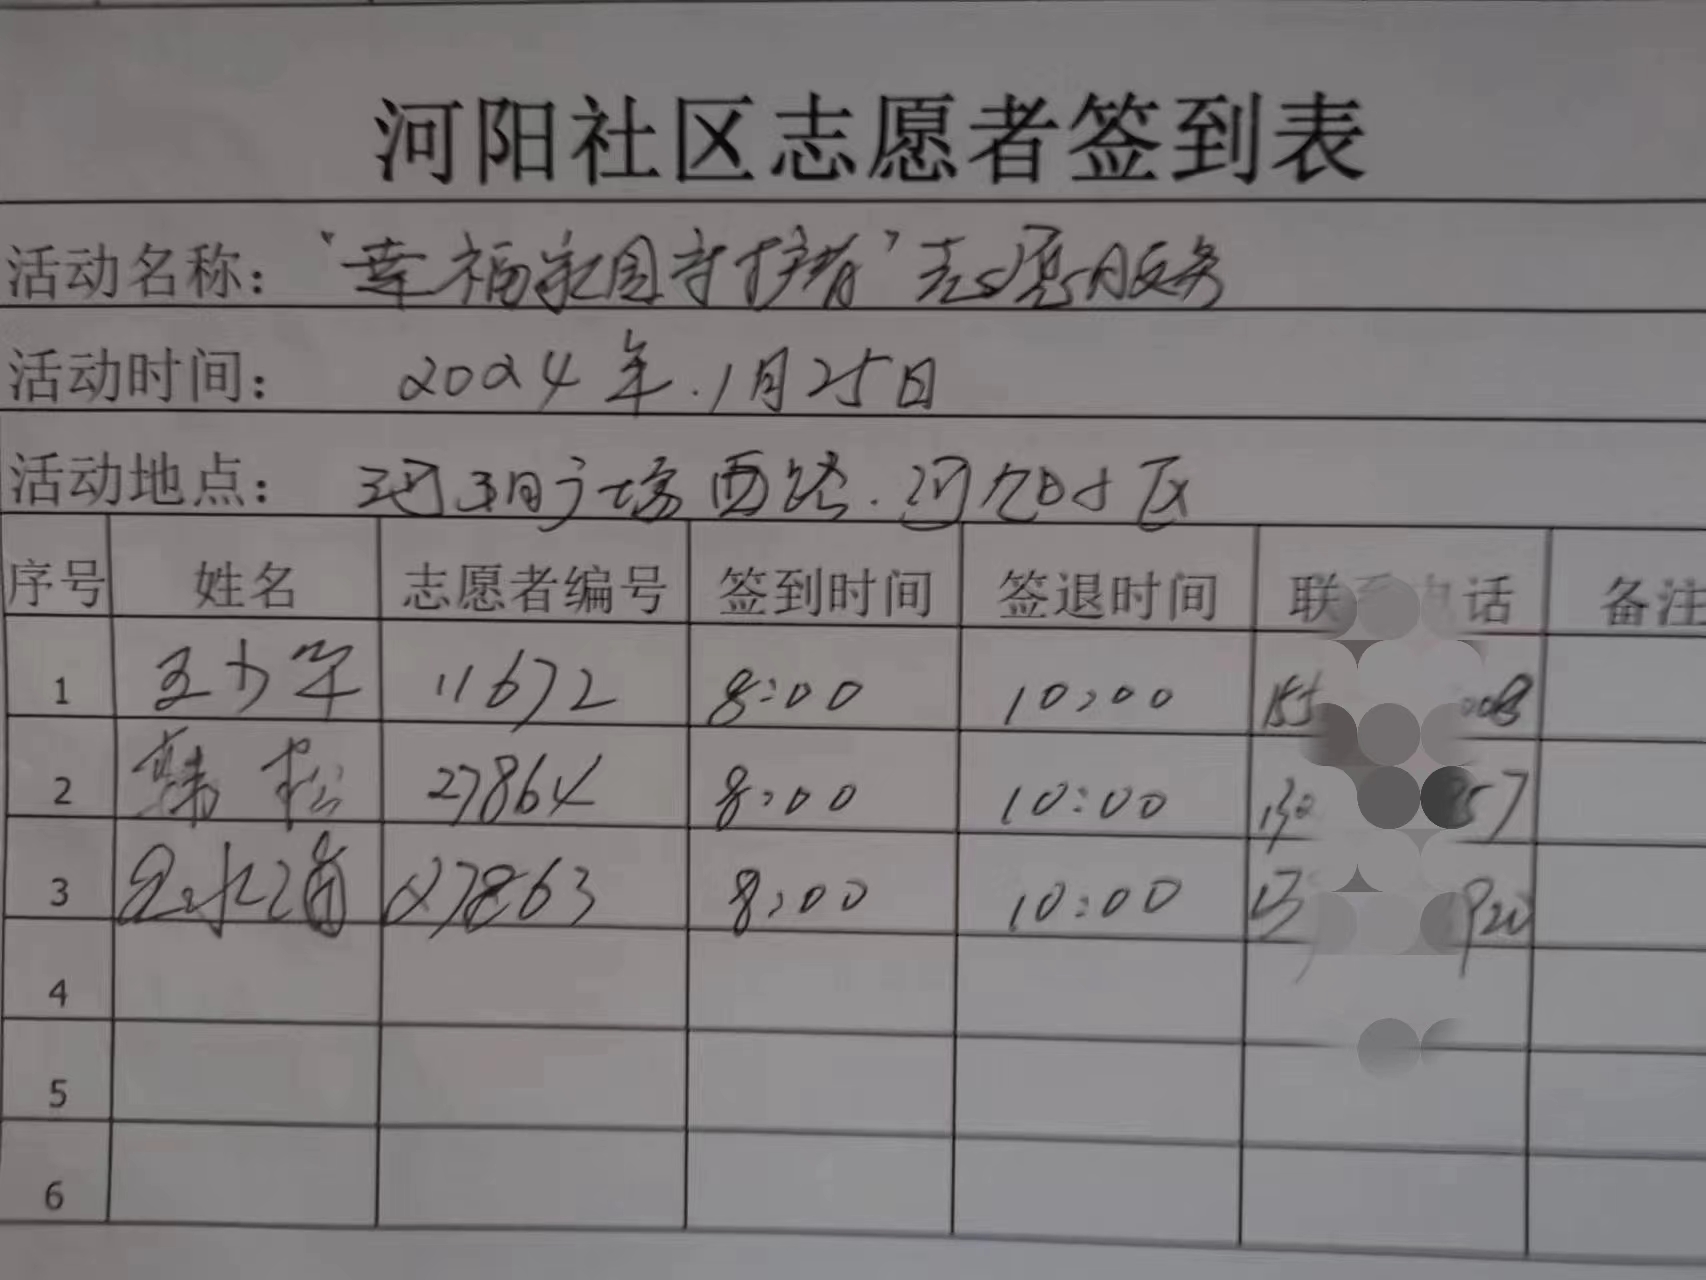 河阳社区志愿者签到表
活动名称：“幸福家园守护者”志愿服务
活动时间： 2024年.1月25日
活动地点： 广场西路.河阳小区
序号 姓名 志愿者编号 签到时间 签退时间 联系电话 备注
1 王少军 11672 8:00 10:00
2 韩松 27864 8:00 10:00
3 27863 8:00 10:00
4
5
6